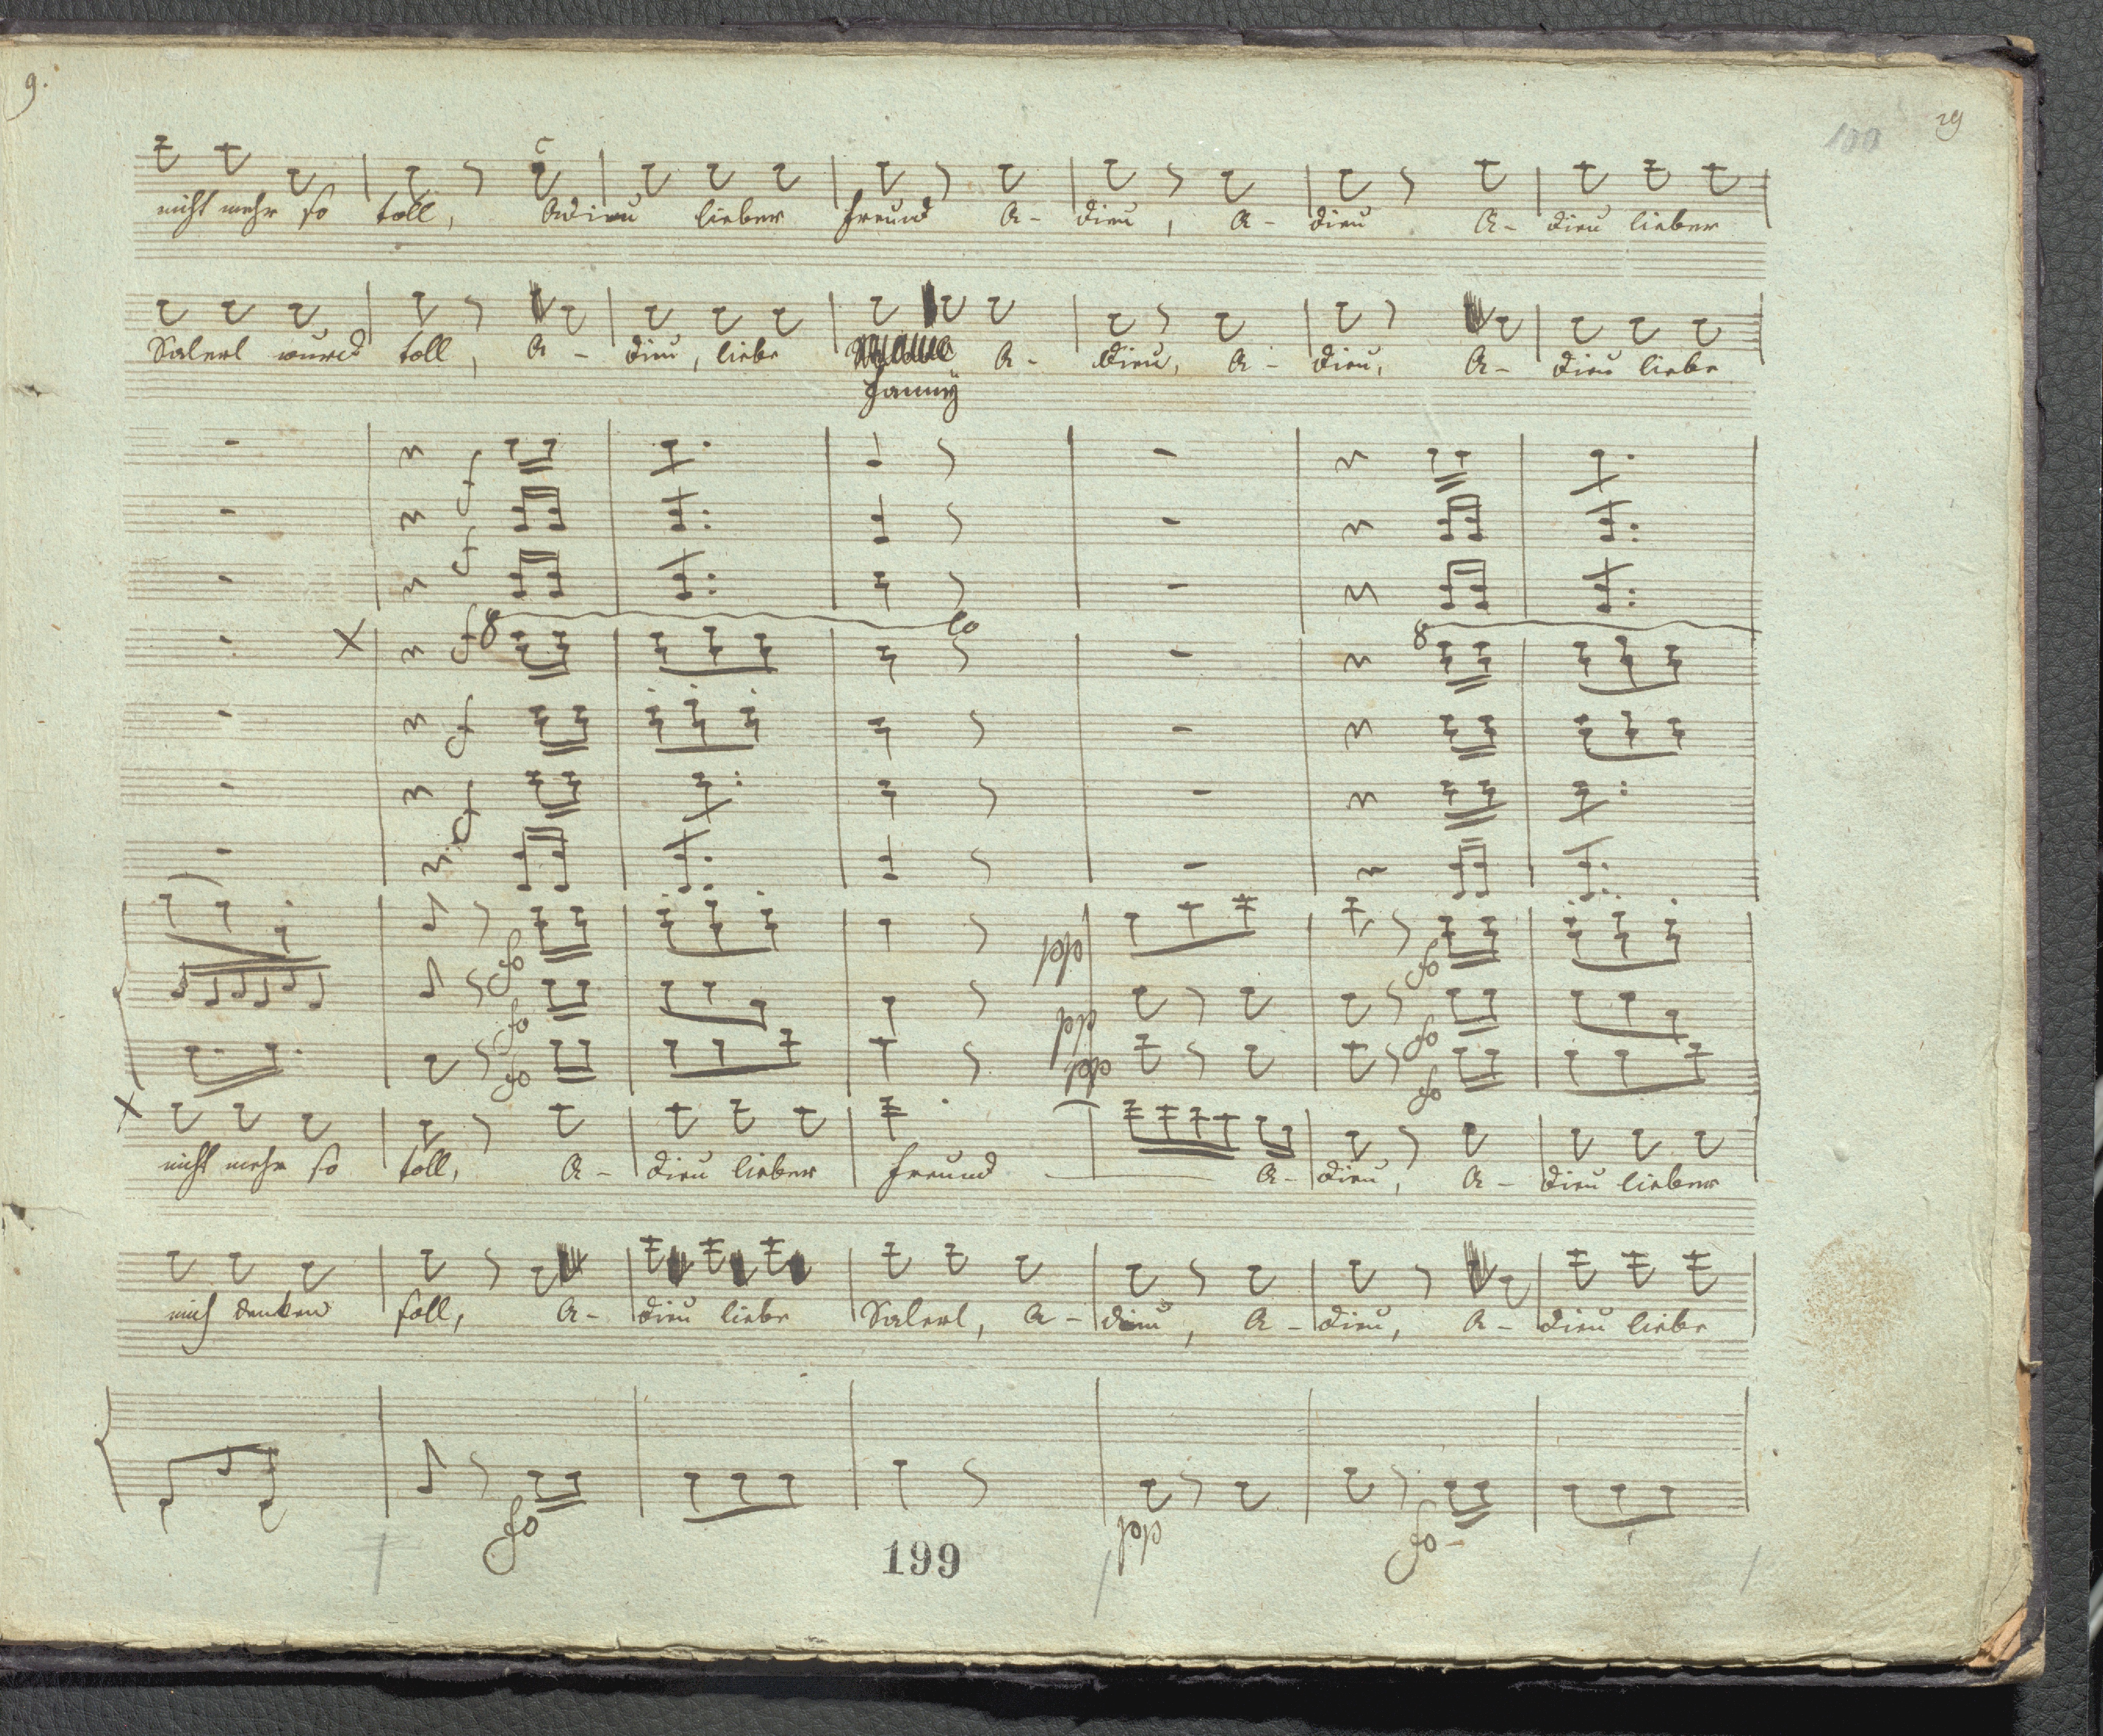 9.
100 29
nicht mehr so toll, Adieu lieber Freund A- dieu, A- dieu A- dieu lieber
Salerl wurd toll, A- dieu, liebe A- dieu, A- dieu, A- dieu liebe
Fanny
f
f
f 8 lo 8
f
f
fo pp fo
fo pp fo
fo pp fo
nicht mehr so toll, A- dieu lieber Freund A- dieu, A- dieu lieber
mich denken soll, A- dieu liebe Salerl, A- dieu, A- dieu, A- dieu liebe
fo pp fo
199